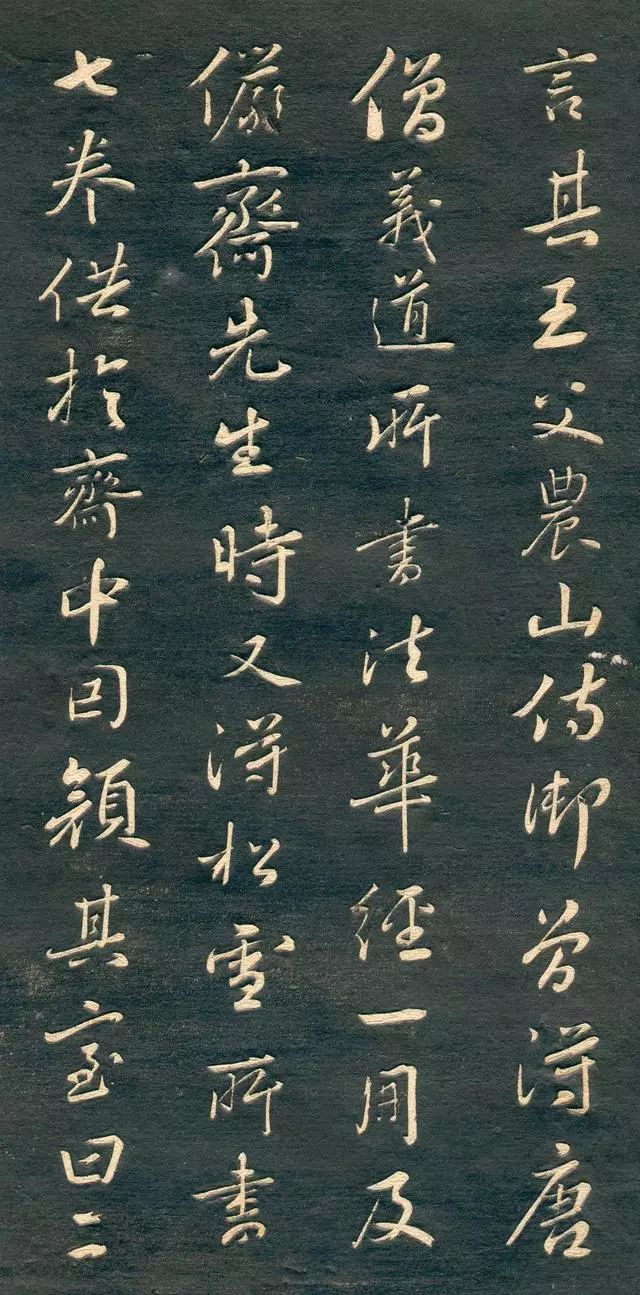 言其王父農山侍御曾得唐
僧義道所書法華經一冊及
儼齋先生時又得松雪所書
七卷供於齋中因顏其室曰二